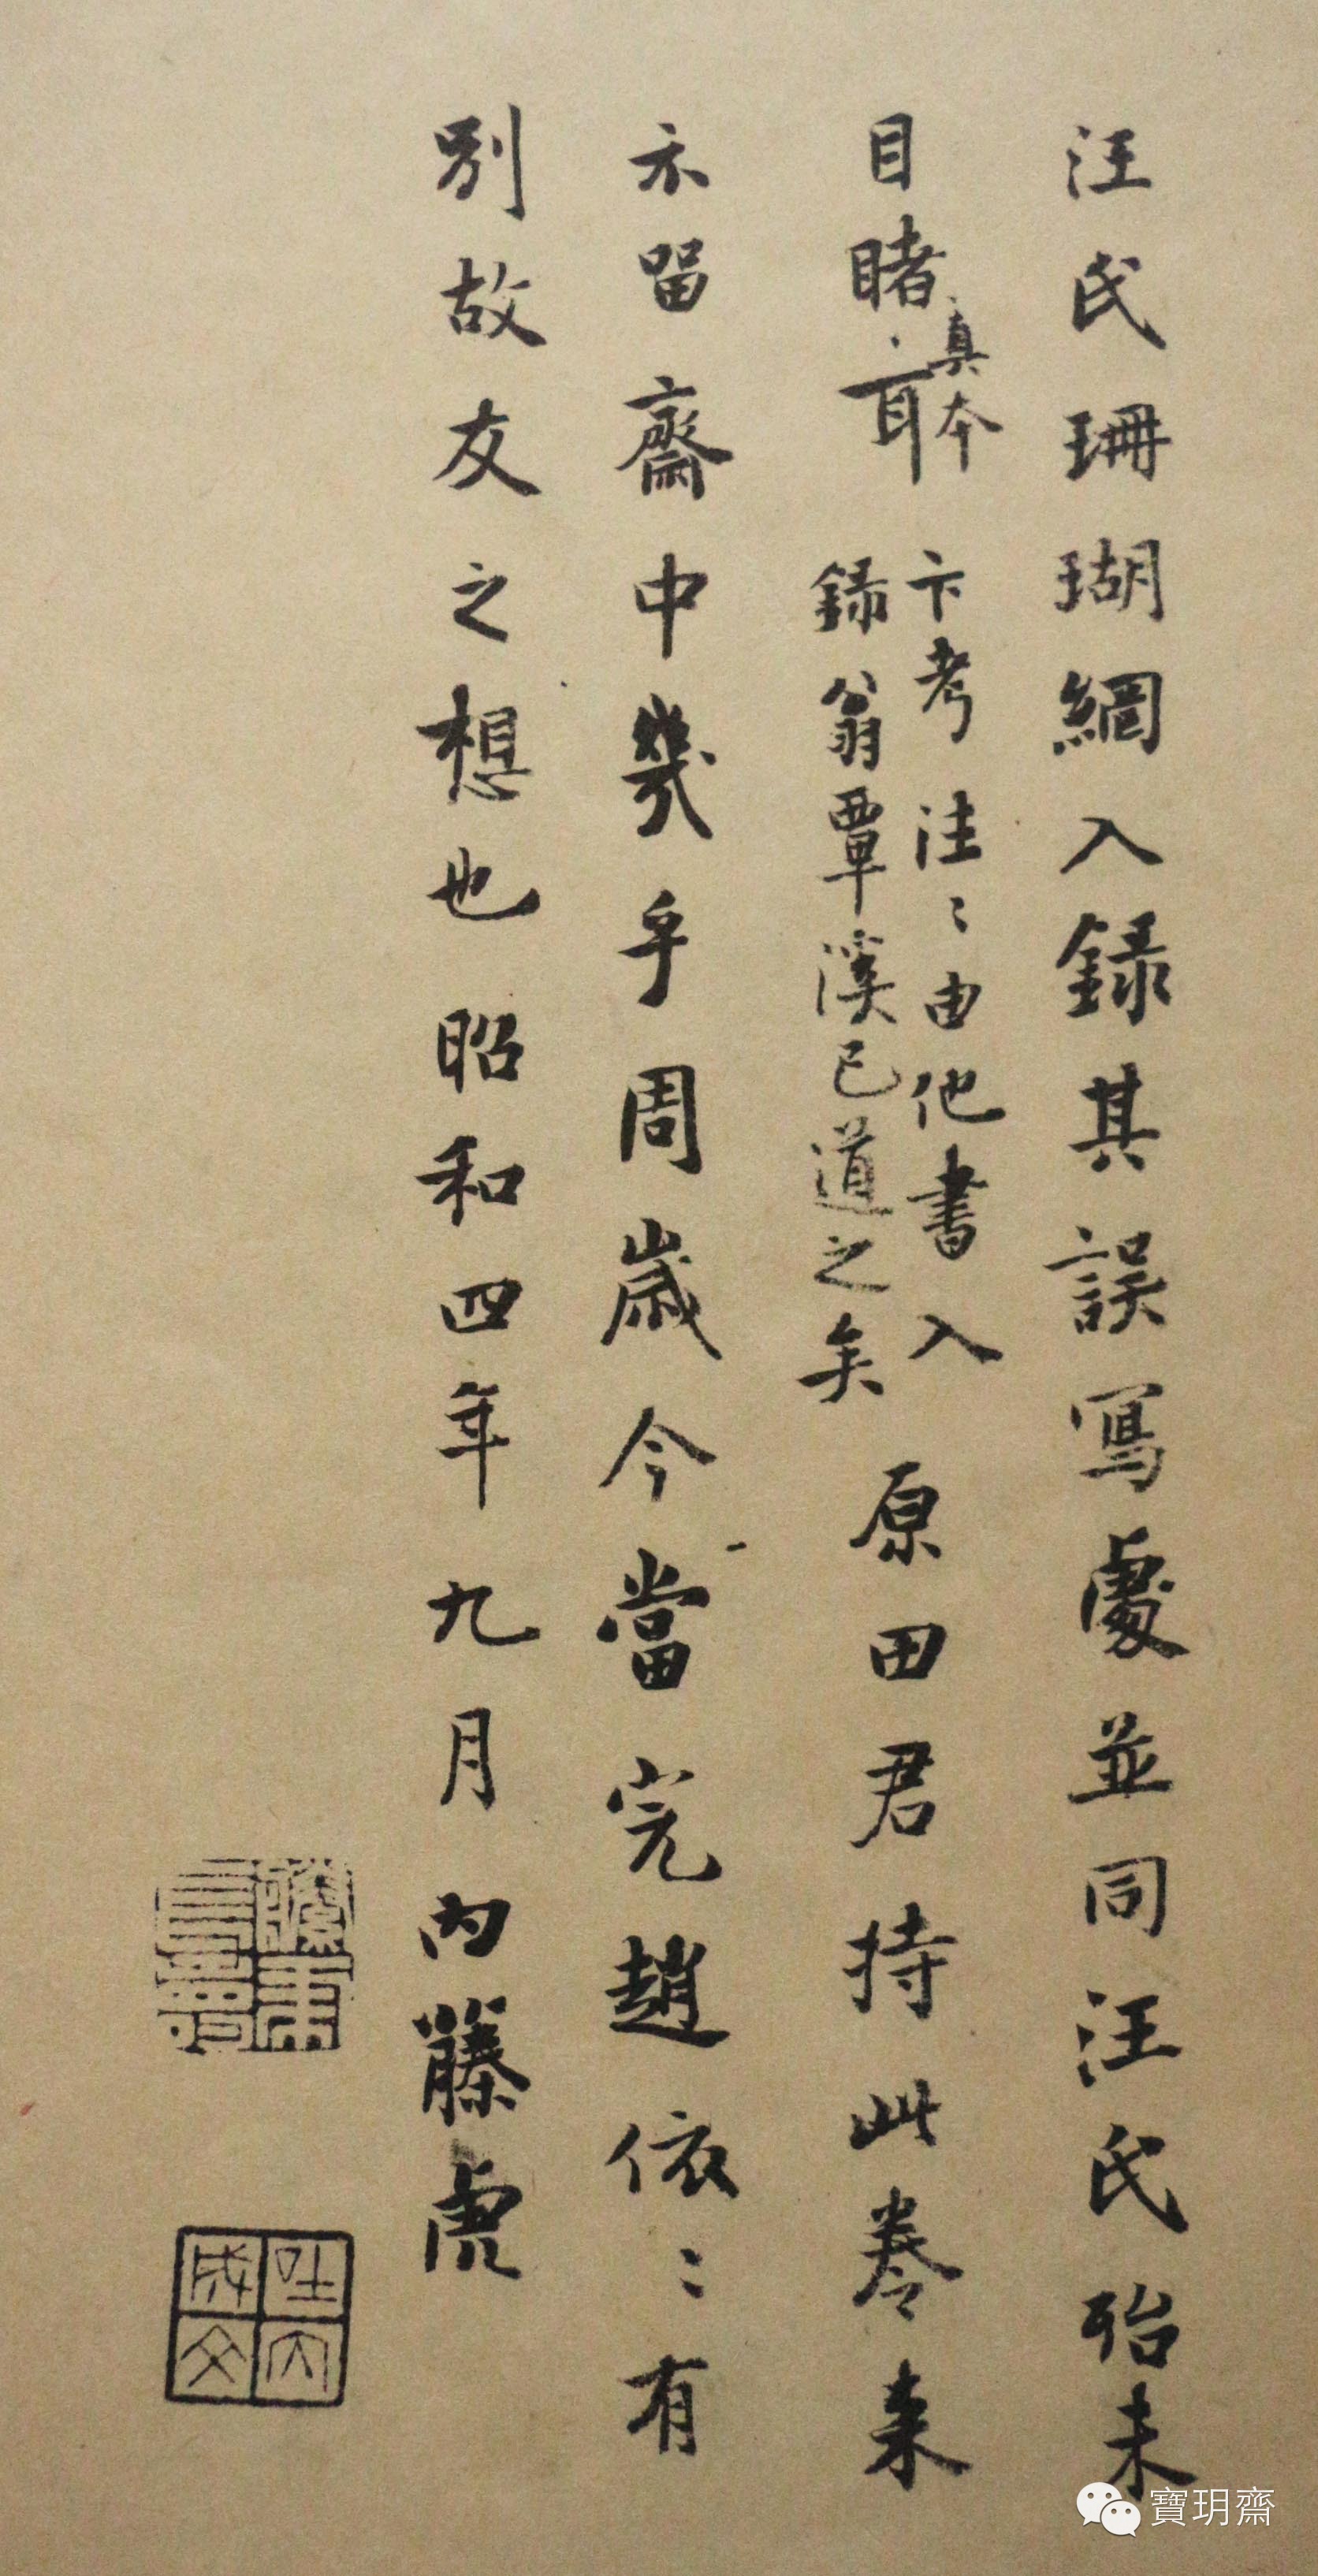 汪氏珊瑚網入録其誤寫處並同汪氏殆未
目睹真本耳
卞考注〻由他書入
録翁覃溪已道之矣
原田君持此卷来
示留齋中幾乎周歲今當完趙依〻有
別故友之想也昭和四年九月内藤虎
寶玥齋